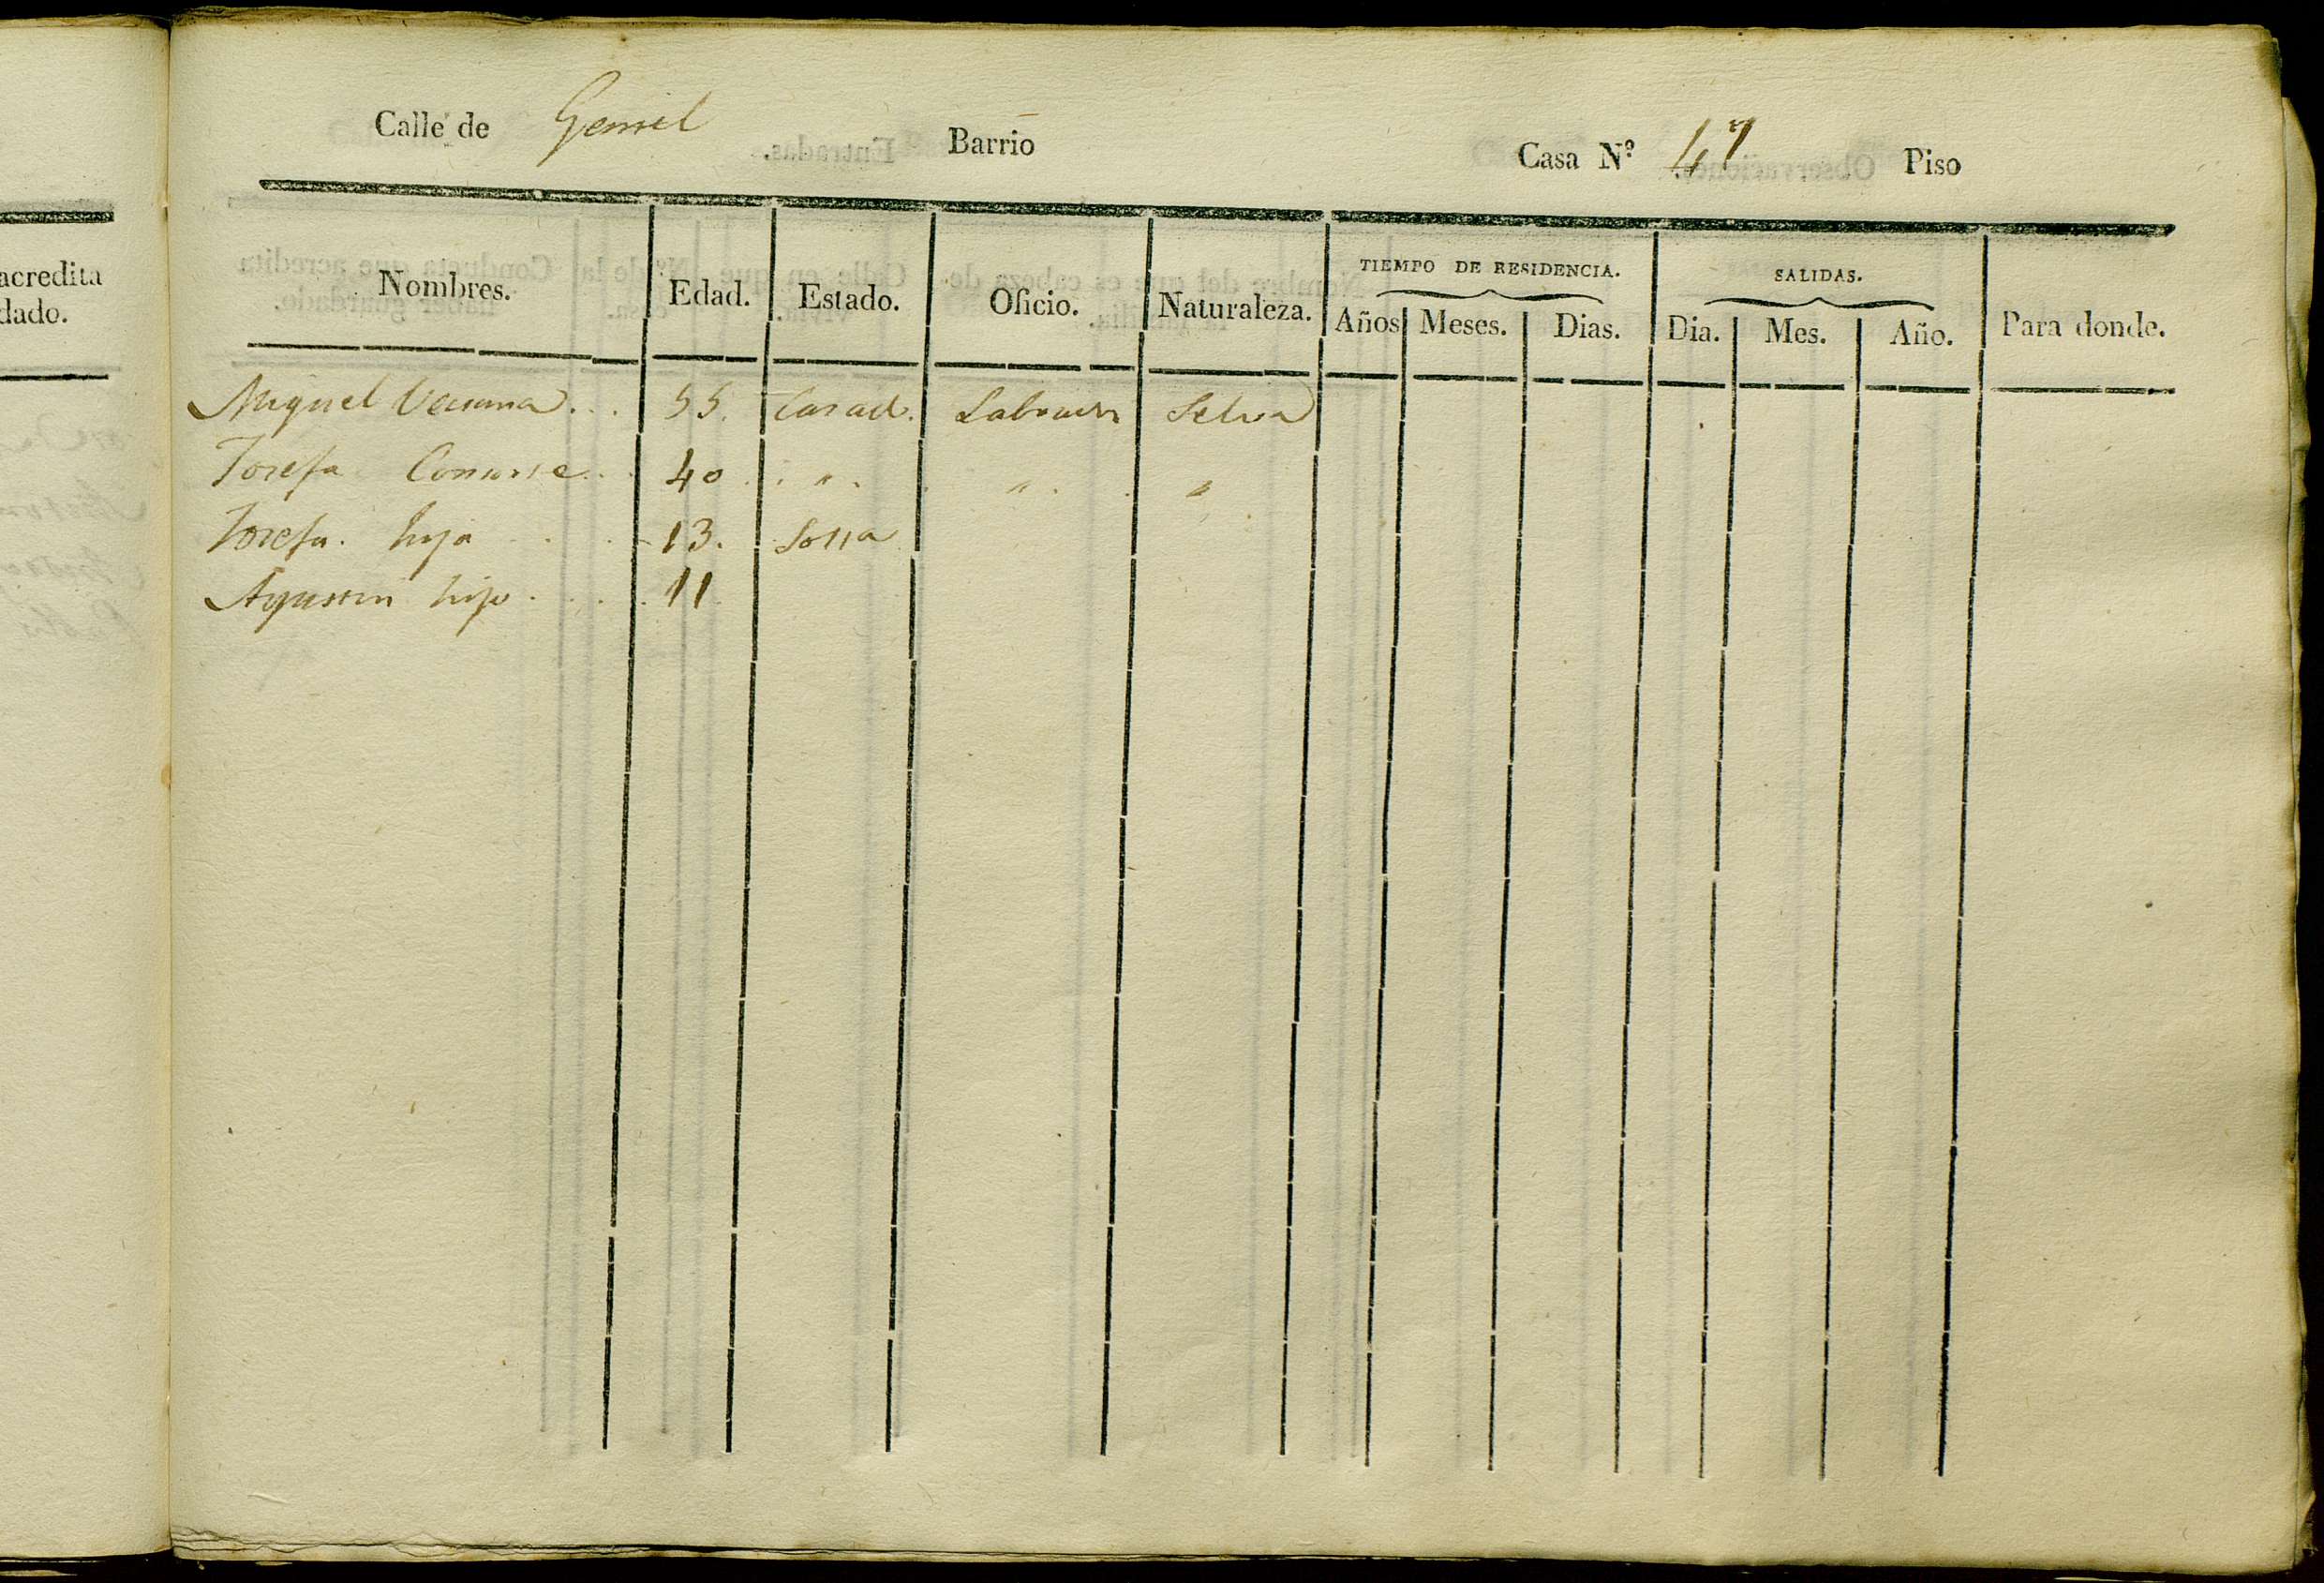 acredita
dado.
Calle de Gemil Barrio Casa Nº 47 Piso
Nombres. Edad. Estado. Oficio. Naturaleza. TIEMPO DE RESIDENCIA. SALIDAS. Para donde.
Años Meses. Dias. Dia. Mes. Año.
Miguel . . . 55. Casad. Labrador Selva
Josefa Consorte . . 40 . . " . . " . . "
Josefa. hija . . . 13. Solta
Agustin hijo . . . . 11